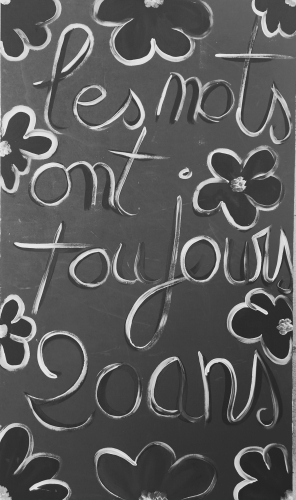 les mots
ont
toujours
20 ans